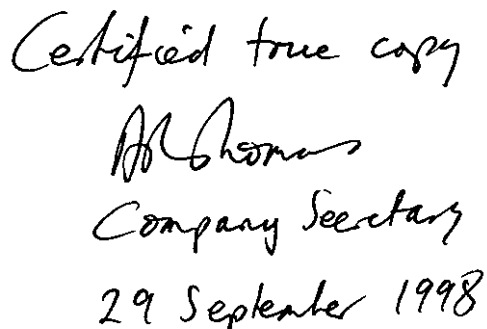 Certified true copy
Company Secretary
29 September 1998